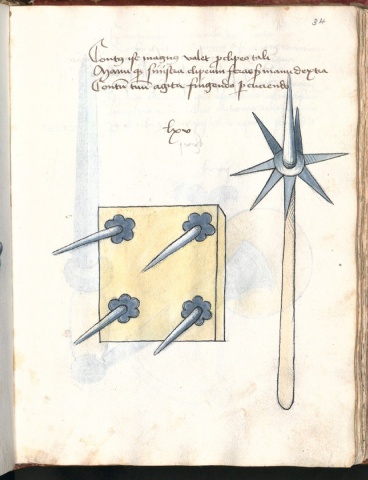 34
Contus iste magnus valet p clipeo tali
Manu q sinistra clipeum feras manu dextra
Contu tuu agita fingendo p cuciendo
lxv